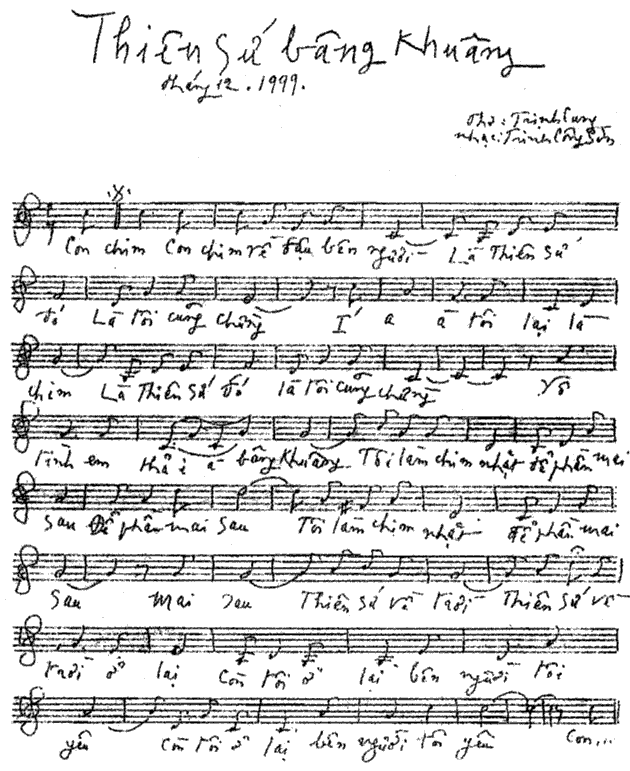 Thiên Sứ bâng Khuâng
tháng 12. 1999.
thơ: Trịnh Cung
nhạc: Trịnh Công Sơn
Con chim Con chim về đậu bên người Là Thiên Sứ
đó Là tôi cũng chẳng Í a à tôi lại là
chim Là Thiên Sứ đó là tôi cũng chẳng Vô
tình em thả i à bâng khuâng Tôi làm chim nhặt để phần mai
Sau Để phần mai Sau Tôi làm chim nhặt để phần mai
Sau mai Sau Thiên Sứ về trời Thiên Sứ về
trời ở lại Còn tôi ở lại bên người tôi
yêu Còn tôi ở lại bên người tôi yêu Con...